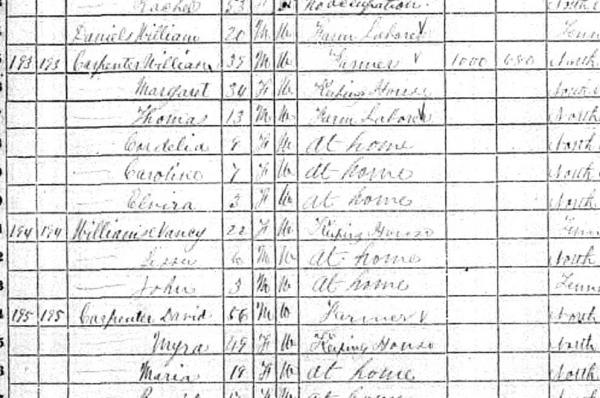 Rachel 53 F W No occupation North
Daniels William 20 M W Farm Laborer Tenn
193 193 Carpenter William 39 M W Farmer 1000 North
— Margaret 34 F W Keeping House North
— Thomas 13 M W Farm Laborer North
— Cordelia 8 F W At home North
— Caroline 7 F W At home North
— Elvira 3 F W At home North
194 194 Nancy 22 F W Keeping House Tenn
— 6 M W At home North
— John 3 M W At home Tenn
195 195 Carpenter David 56 M W Farmer North
— Myra 49 F W Keeping House North
— Maria 19 F W At home North